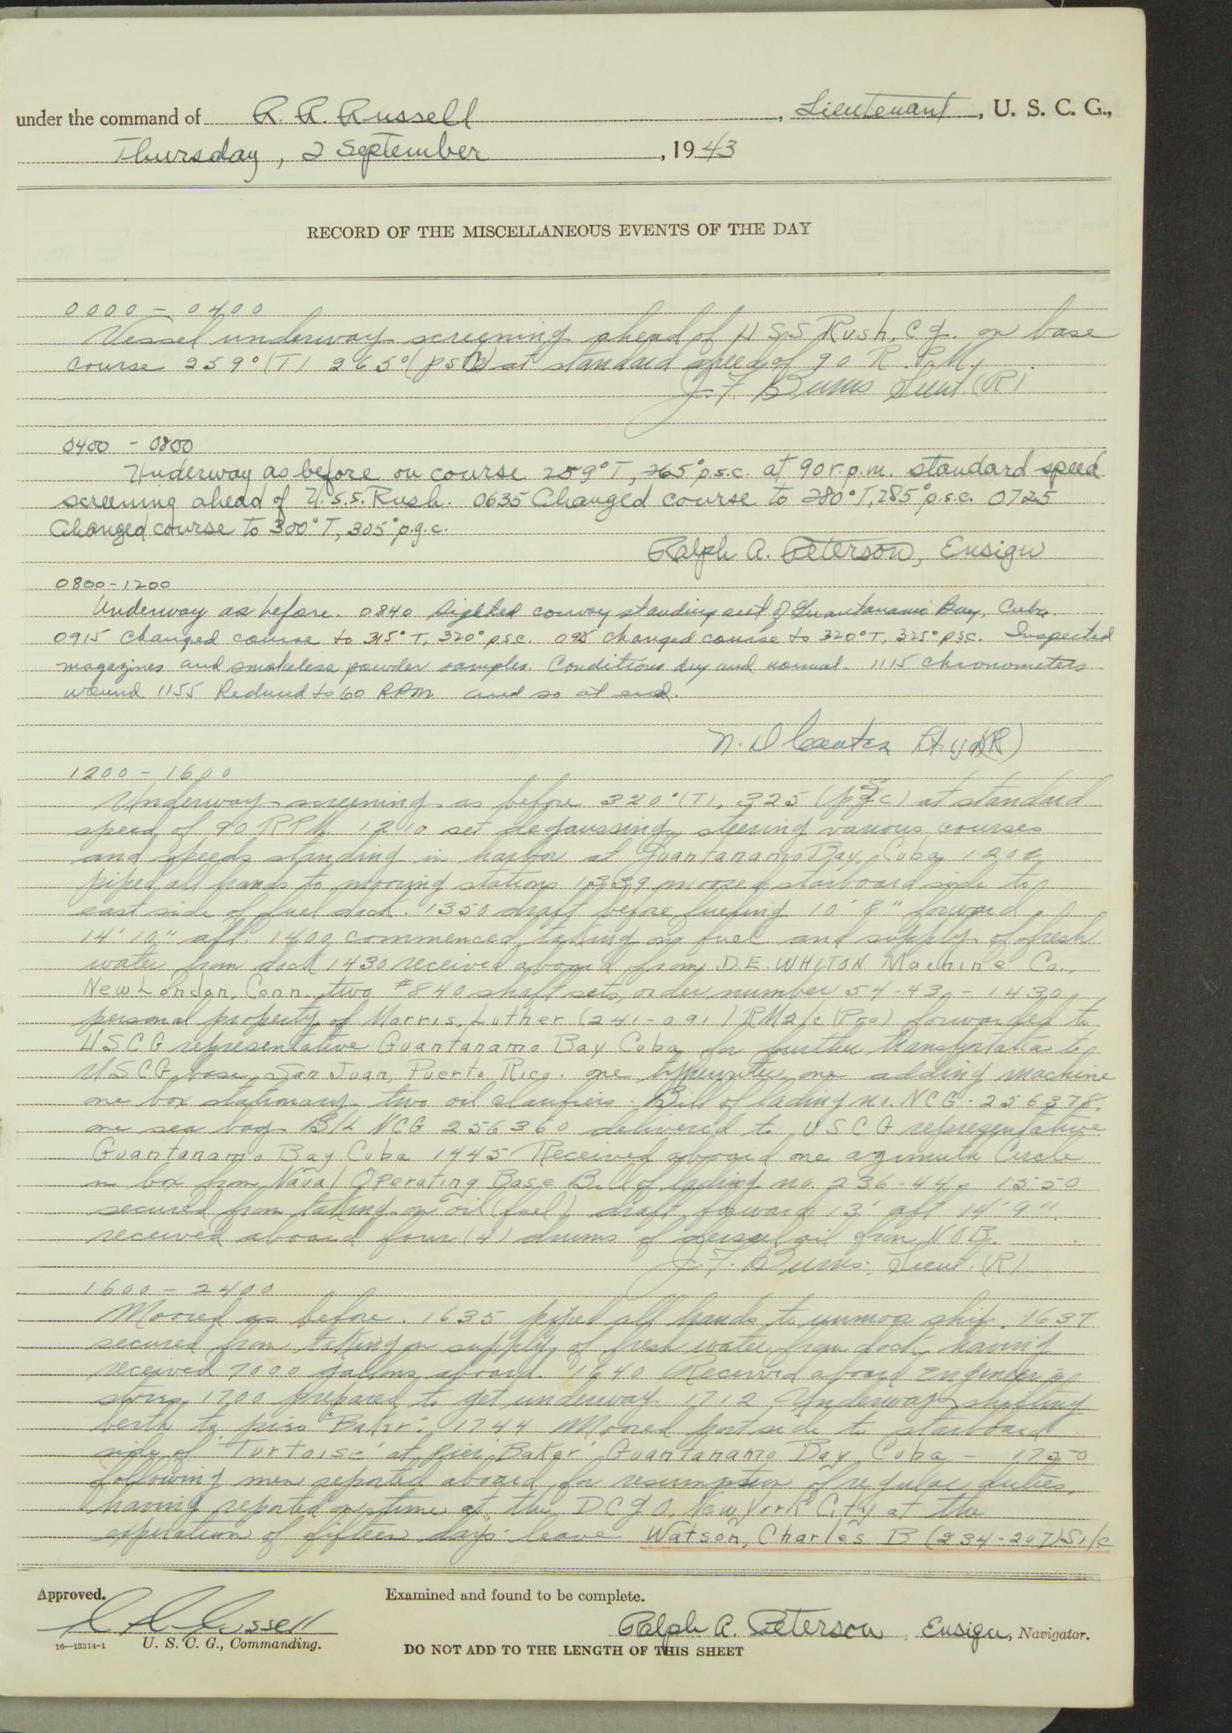 under the command of R. R. Russell, Lieutenant, U. S. C. G.,
Thursday, 2 September, 1943
RECORD OF THE MISCELLANEOUS EVENTS OF THE DAY
0000 - 0400
Vessel underway screening ahead of U S S Rush, C.G. on base
course 259° (T) 265° (psc) at standard speed of 90 R.P.M.
J. F. Burns Lieut. (R)
0400 - 0800
Underway as before on course 259° T, 265° p.s.c. at 90 r.p.m. standard speed
screening ahead of U.S.S. Rush. 0635 Changed course to 280° T, 285° p.s.c. 0725
Changed course to 300° T, 305° p.g.c.
Ralph A. Peterson, Ensign
0800-1200
Underway as before. 0840 Sighted convoy standing out of Guantanamo Bay, Cuba.
0915 Changed course to 315° T, 320° psc. changed course to 320° T, 325° psc. Inspected
magazines and smokeless powder samples. Conditions dry and normal. 1115 chronometers
wound 1155 Reduced to 60 RPM and so at end.
N. D
1200 - 1600
Underway screening as before 320° (T), 325 at standard
speed of 90 RPM. 1210 set degaussing, steering various courses
and speeds standing in harbor at Guantanamo Bay, Cuba
piped all hands to mooring stations 1339 moored starboard side to
east side of fuel dock. 1350 draft before fueling 10' 8" forward,
14' 10" aft. 1400 commenced taking on fuel and supply of fresh
water from dock 1430 received aboard from D.E. WHITON Machine Co.,
New London, Conn. two #840 shaft sets, order number 54-43 - 1430
personal property of Morris, Luther (241-091) RM2/c forwarded to
USCG representative Guantanamo Bay Cuba for further transportation to
USCG base, San Juan, Puerto Rico. one typewriter, one adding machine
one box stationary two oil clarifiers. Bill of lading no. NCG-256378.
one sea bag B/L NCG 256360 delivered to USCG representative
Guantanamo Bay Cuba 1445 Received aboard one azimuth Circle
in box from Naval Operating Base Bill of lading no. 236-44. 1550
secured from taking on oil (fuel) draft forward 13' aft 14' 9".
received aboard four (4) drums of diesel oil from N.O.B.
J. F. Burns. Lieut. (R)
1600 - 2400
Moored as before. 1635 piped all hands to unmoor ship. 1637
secured from taking on supply of fresh water from dock, having
received 7000 gallons aboard. 1640 Received aboard Engineering
stores. 1700 prepared to get underway. 1712 Underway shifting
berth to pier "Baker". 1744 Moored port side to starboard
side of 'Tortoise' at Pier 'Baker' Guantanamo Bay, Cuba -
following men reported aboard for resumption of regular duties,
having reported on time at the DCGO, New York City at the
expiration of fifteen days leave Watson, Charles B (234-207) S1/c
Approved.
Examined and found to be complete.
R R Russell
Ralph A. Peterson, Ensign, Navigator.
16—13314-1 U. S. C. G., Commanding.
DO NOT ADD TO THE LENGTH OF THIS SHEET